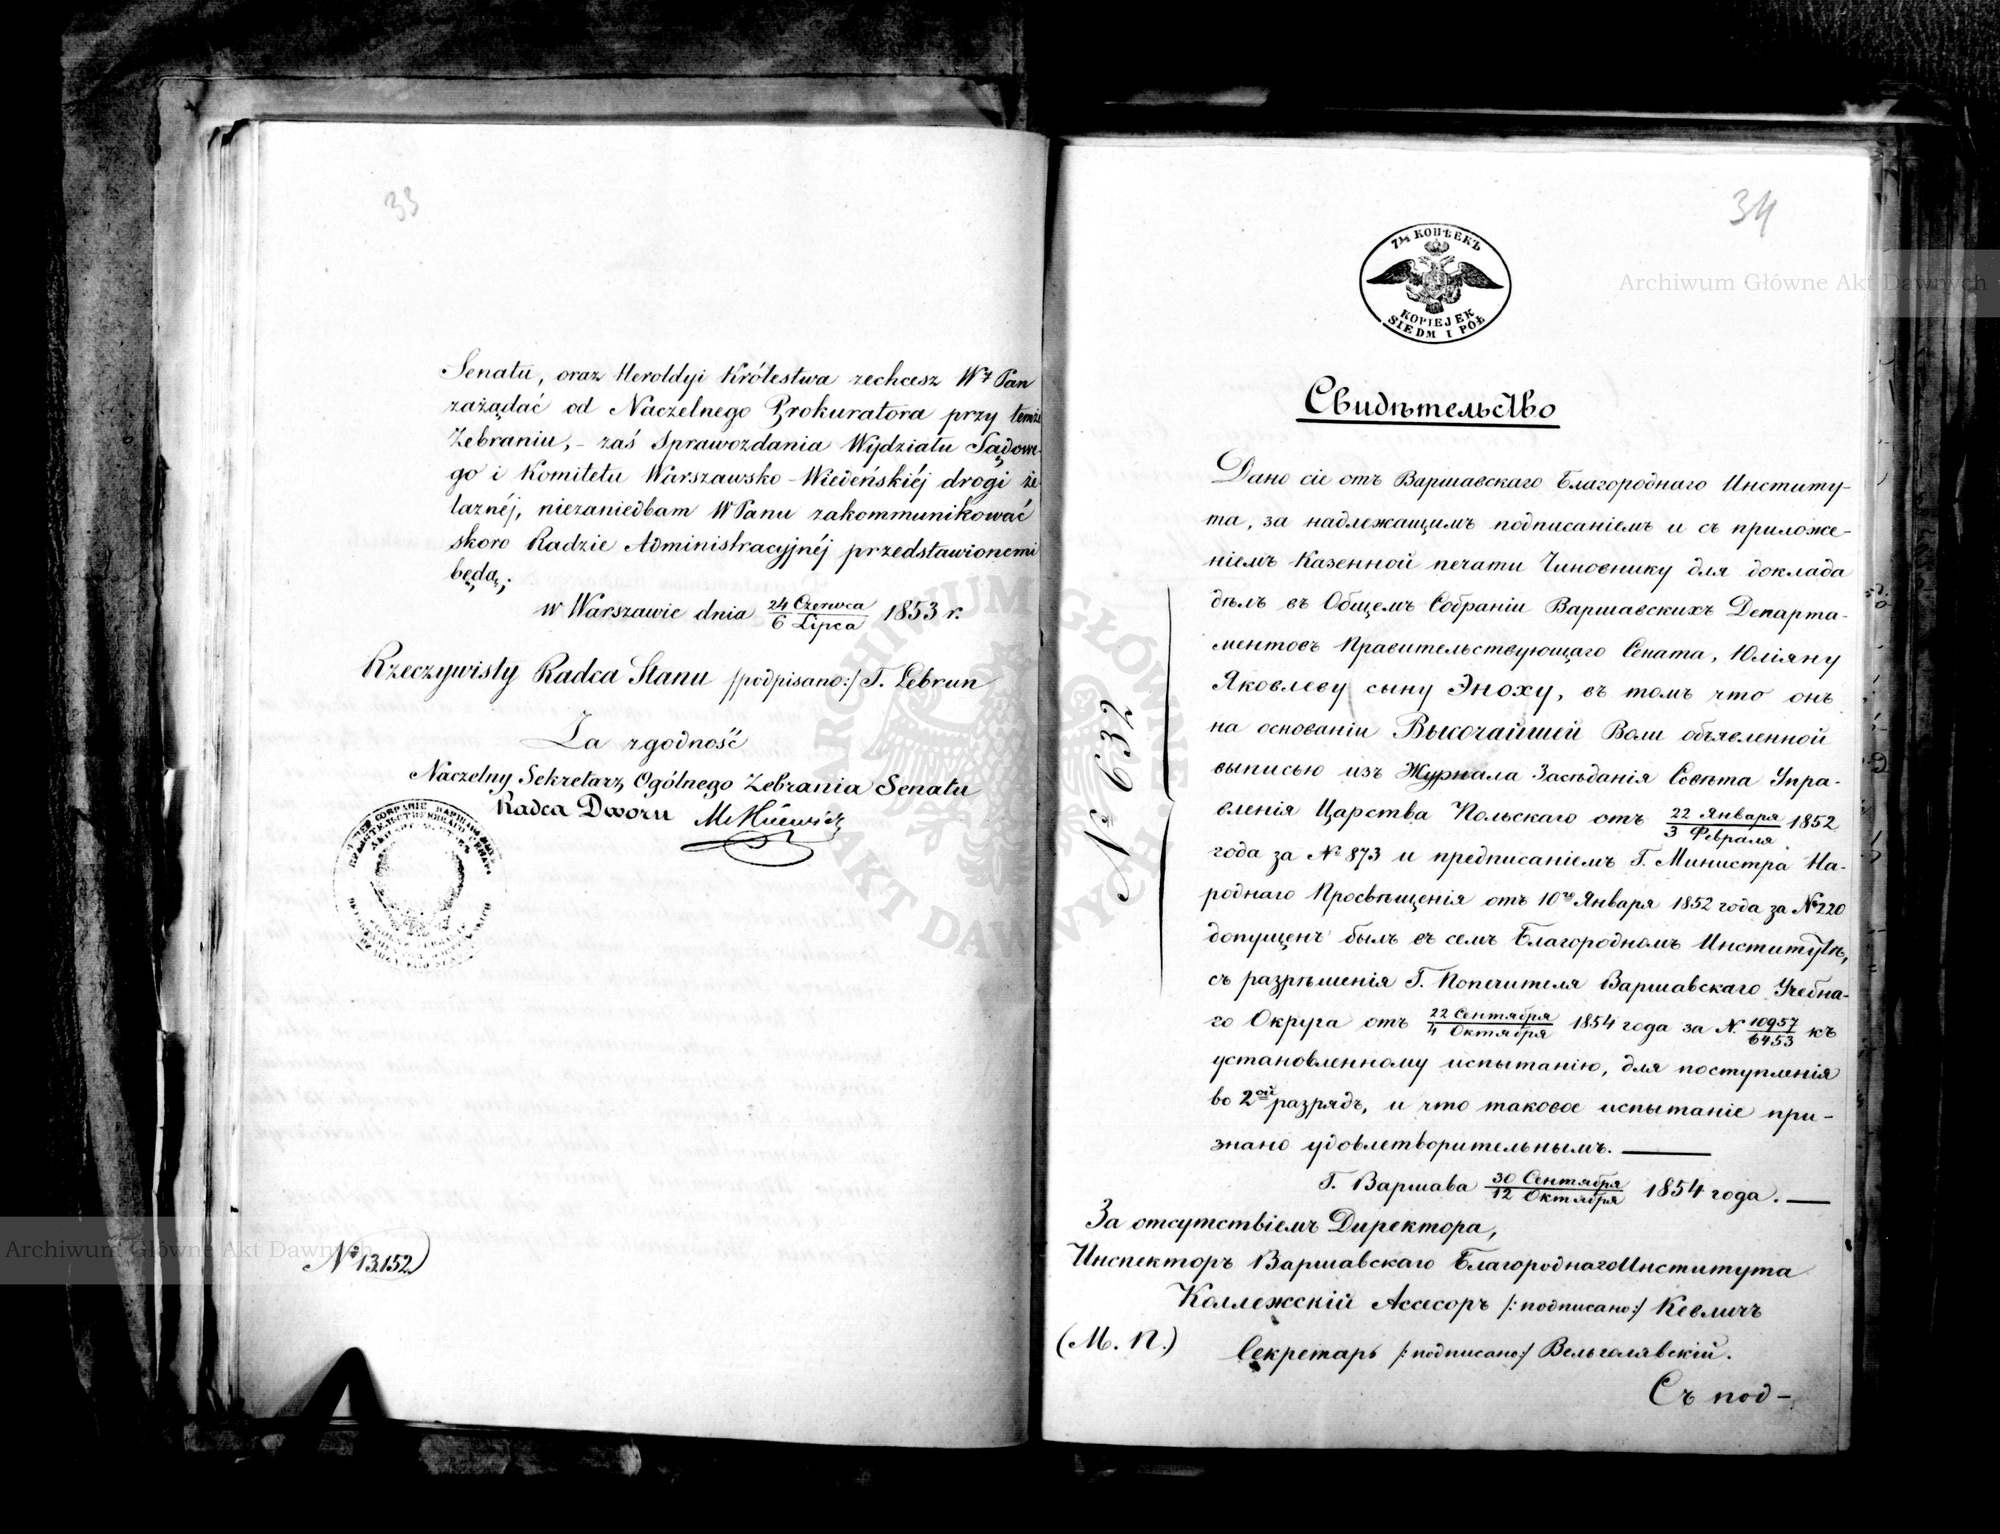 33
Senatu, oraz Heroldyi Królestwa zechcesz Wy Pan
zażądać od Naczelnego Prokuratora przy temże
Zebraniu,- zaś Sprawozdania Wydziału Sądowe-
go i Komitetu Warszawsko-Wiedeńskiéj drogi że
laznéj, niezaniedbam WPanu zakommunikować
skoro Radzie Administracyjnéj przedstawionemi
będą;
w Warszawie dnia 24 Czerwca / 6 Lipca 1853 r.
Rzeczywisty Radca Stanu /podpisano:/ T. Lebrun
Za zgodność
Naczelny Sekretarz Ogólnego Zebrania Senatu
Radca Dworu
№ 13,152)
34
7½ КОПѢЕКЪ
KOPIEJEK
SIEDM I PÓŁ
Свидѣтельство
Дано сіе отъ Варшавскаго Благороднаго Институ-
та, за надлежащимъ подписаніемъ и съ приложе-
ніемъ Казенной печати Чиновнику для доклада
дѣлъ въ Общемъ Собраніи Варшавскихъ Департа-
ментовъ Правительствующаго Сената, Юліяну
Яковлеву сыну Эноху, въ томъ что онъ
на основаніи Высочайшей Воли объявленной
выписью изъ Журнала Засѣданія Совѣта Упра-
вленія Царства Польскаго отъ 22 Января / 3 Февраля 1852
года за № 873 и предписаніемъ Г. Министра На-
роднаго Просвѣщенія отъ 10го Января 1852 года за № 220
допущенъ былъ въ семъ Благородномъ Институтѣ,
съ разрѣшенія Г. Попечителя Варшавскаго Учебна-
го Округа отъ 22 Сентября / 4 Октября 1854 года за № 10957 / 6453 къ
установленному испытанію, для поступленія
во 2ой разрядъ, и что таковое испытаніе при-
знано удовлетворительнымъ.
Г. Варшава 30 Сентября / 12 Октября 1854 года.
№ 632
За отсутствіемъ Директора,
Инспекторъ Варшавскаго Благороднаго Института
Коллежскій Асессоръ /:подписано:/ Кевличъ
(М. П.) Секретарь /:подписано:/ Вельголявскій.
Съ под-
Archiwum Główne Akt Dawnych
Archiwum Główne Akt Dawnych
ARCHIWUM GŁÓWNE AKT DAWNYCH